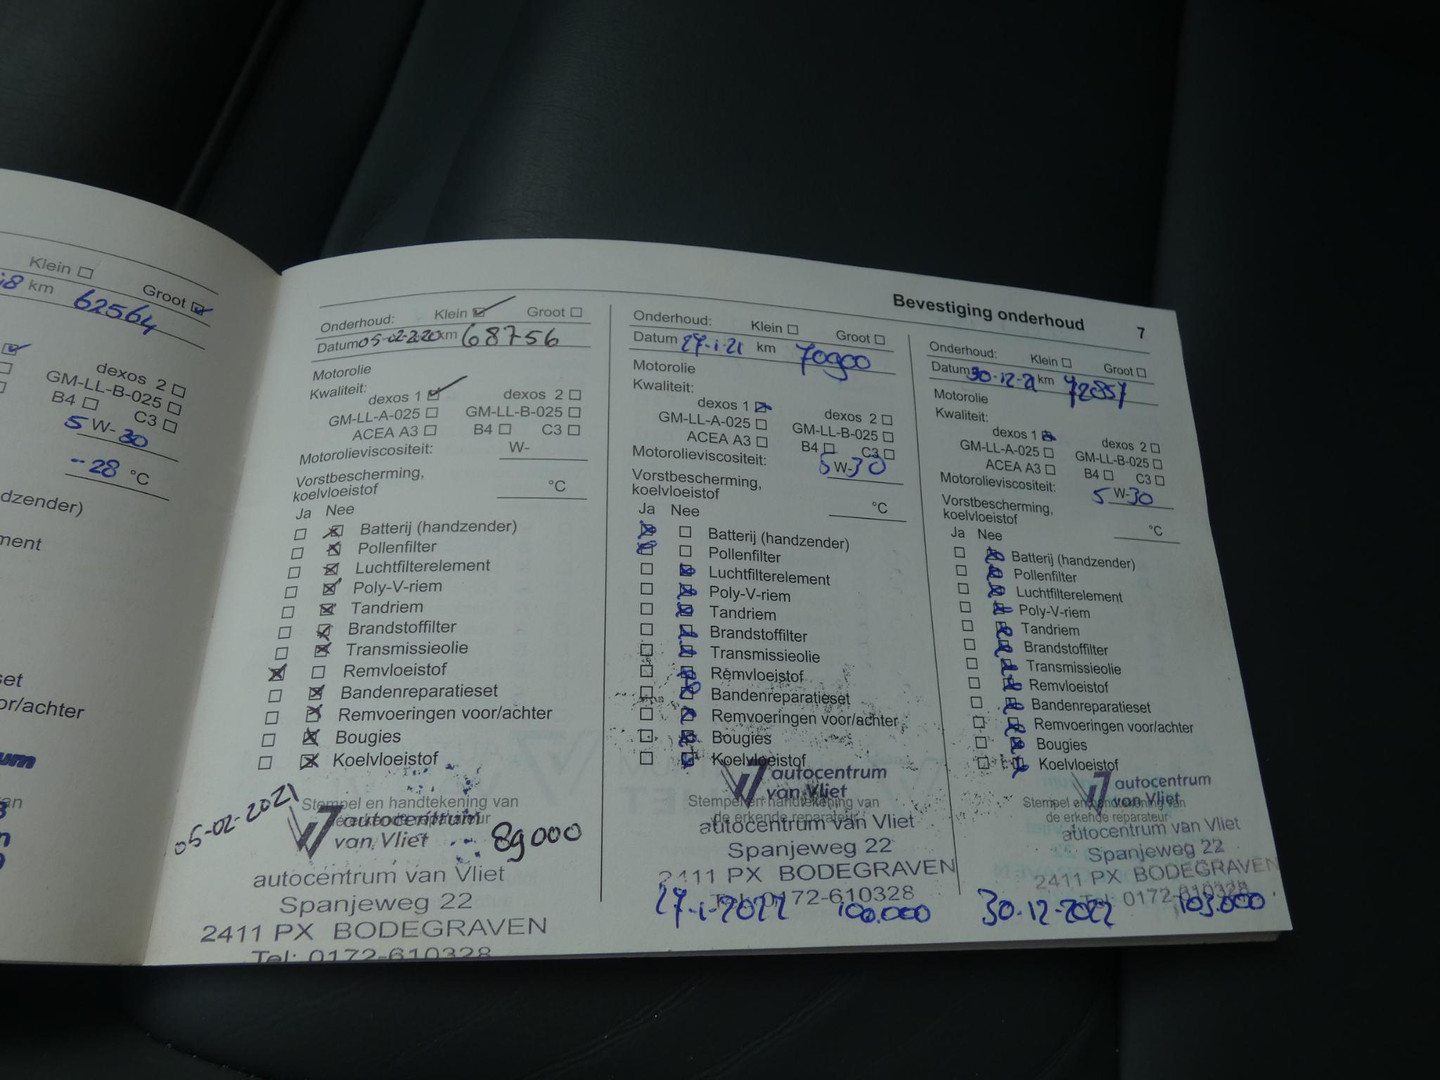 Klein
Groot
km 62564
dexos 2
GM-LL-B-025
B4 C3
5 W-30
-28 °C
Bevestiging onderhoud 7
Onderhoud: Klein Groot
Datum 05-02-2020 km 68756
Motorolie
Kwaliteit:
dexos 1 dexos 2
GM-LL-A-025 GM-LL-B-025
ACEA A3 B4 C3
Motorolieviscositeit: W-
Vorstbescherming,
koelvloeistof °C
Ja Nee
Batterij (handzender)
Pollenfilter
Luchtfilterelement
Poly-V-riem
Tandriem
Brandstoffilter
Transmissieolie
Remvloeistof
Bandenreparatieset
Remvoeringen voor/achter
Bougies
Koelvloeistof
Stempel en handtekening van
de erkende reparateur
autocentrum
van Vliet
05-02-2021 89000
autocentrum van Vliet
Spanjeweg 22
2411 PX BODEGRAVEN
Tel: 0172-610328
Onderhoud: Klein Groot
Datum 27-1-21 km 70900
Motorolie
Kwaliteit:
dexos 1 dexos 2
GM-LL-A-025 GM-LL-B-025
ACEA A3 B4 C3
Motorolieviscositeit: 5 W-30
Vorstbescherming,
koelvloeistof °C
Ja Nee
Batterij (handzender)
Pollenfilter
Luchtfilterelement
Poly-V-riem
Tandriem
Brandstoffilter
Transmissieolie
Remvloeistof
Bandenreparatieset
Remvoeringen voor/achter
Bougies
Koelvloeistof
autocentrum
van Vliet
Stempel en handtekening van
de erkende reparateur
autocentrum van Vliet
Spanjeweg 22
2411 PX BODEGRAVEN
Tel: 0172-610328
27-1-2022 100.000
Onderhoud: Klein Groot
Datum 30-12-21 km 72857
Motorolie
Kwaliteit:
dexos 1 dexos 2
GM-LL-A-025 GM-LL-B-025
ACEA A3 B4 C3
Motorolieviscositeit: 5 W-30
Vorstbescherming,
koelvloeistof °C
Ja Nee
Batterij (handzender)
Pollenfilter
Luchtfilterelement
Poly-V-riem
Tandriem
Brandstoffilter
Transmissieolie
Remvloeistof
Bandenreparatieset
Remvoeringen voor/achter
Bougies
Koelvloeistof
autocentrum
van Vliet
Stempel en handtekening van
de erkende reparateur
autocentrum van Vliet
Spanjeweg 22
2411 PX BODEGRAVEN
Tel: 0172-610328
30-12-2022 103.000